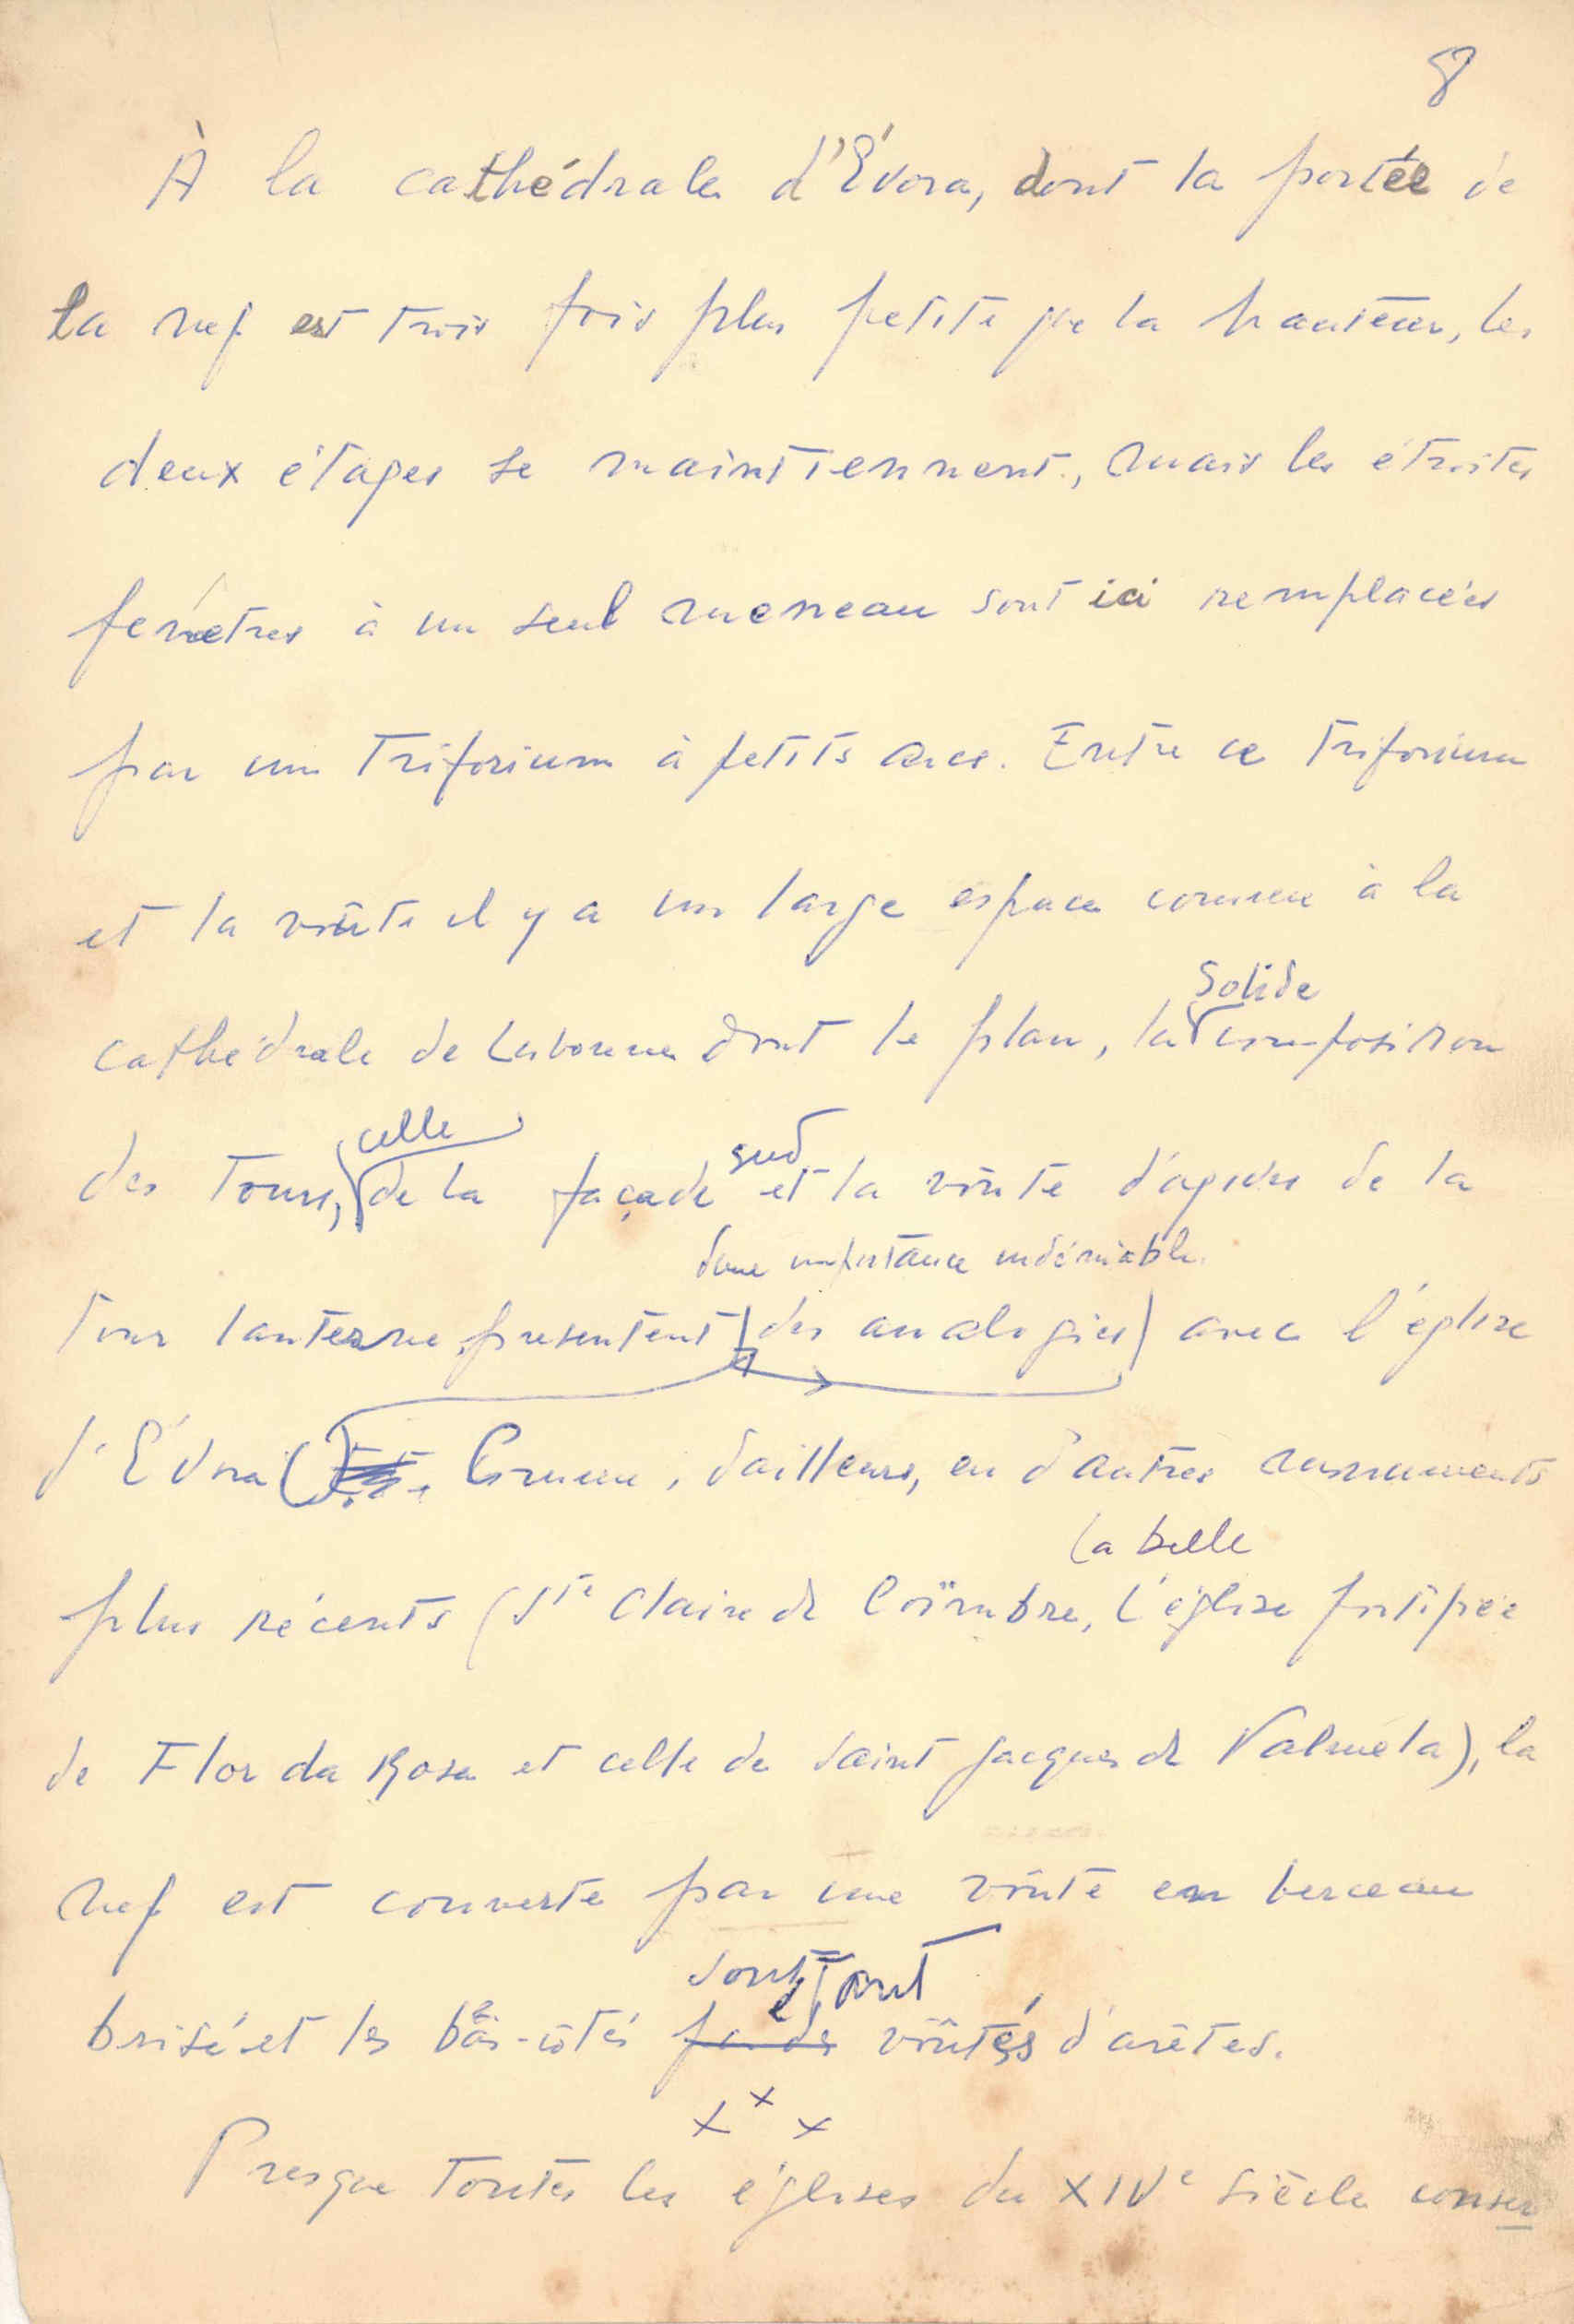 8
À la cathédrale d'Évora, dont la portée de
la nef est trois fois plus petite que la hauteur, les
deux étages se maintiennent, mais les étroites
fenêtres à un seul meneau sont ici remplacées
par un triforium à petits arcs. Entre ce triforium
et la voûte il y a un large espace comme à la
solide
cathédrale de Lisbonne dont le plan, la composition
celle
sud
des tours, de la façade et la voûte d'après de la
d'une importance indéniable
tour lanterne présentent des analogies avec l'église
d'Évora. Comme, d'ailleurs, en d'autres monuments
la belle
plus récents (Ste Claire de Coïmbre, l'église fortifiée
de Flor da Rosa et celle de Saint Jacques de Palmela), la
nef est couverte par une voûte en berceau
sont
brisé et les bas-côtés voûtés d'arêtes.
x x x
Presque toutes les églises du XIVe siècle conser